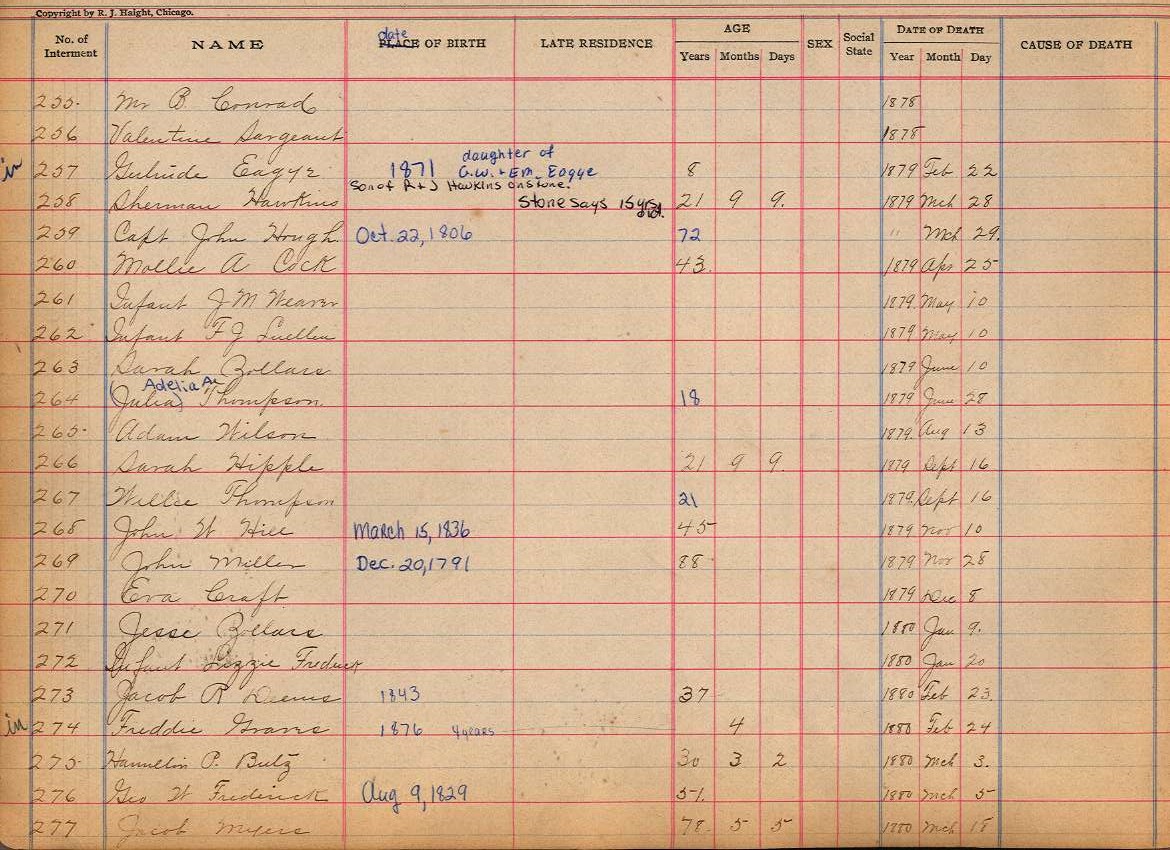 Copyright by R. J. Haight, Chicago.
No. of Interment NAME date PLACE OF BIRTH LATE RESIDENCE AGE Years Months Days SEX Social State DATE OF DEATH Year Month Day CAUSE OF DEATH
255. Mr B. Conrad 1878
256 Valentine Sargeant 1878
in 257 Gertrude Eagye 1871 daughter of G.W. + Em. Eagye 8 1879 Feb 22
Son of R + J Hawkins on stone.
258 Sherman Hawkins Stone says 15 yrs. old. 21 9 9. 1879 Mch 28
259 Capt John Hough. Oct. 22, 1806 72 " Mch 29.
260 Mollie A Cock 43. 1879 Apr 25
261 Infant J M Weaver 1879. May 10
262 Infant F J Luellen 1879 May 10
263 Sarah Zollars 1879 June 10
Adelia A.
264 (Julia) Thompson. 18 1879 June 28
265 Adam Wilson 1879. Aug 13
266 Sarah Hipple 21 9 9. 1879 Sept 16
267 Willie Thompson 21 1879. Sept 16
268 John W Hill March 15, 1836 45 1879 Nov 10
269 John Miller Dec. 20, 1791 88 1879 Nov 28
270 Eva Craft 1879 Dec 8
271 Jesse Zollars 1880 Jan 9.
272 Infant Lizzie Fredrick 1880 Jan 20
273 Jacob R Deems 1843 37 1880 Feb 23
in 274 Freddie Graves 1876 4 years 4 1880 Feb 24
275 Hamelton P. Butz 30 3 2 1880 Mch 3.
276 Geo W Frederick Aug 9, 1829 51. 1880 Mch 5
277 Jacob Myers 78. 5 5 1880 Mch 18